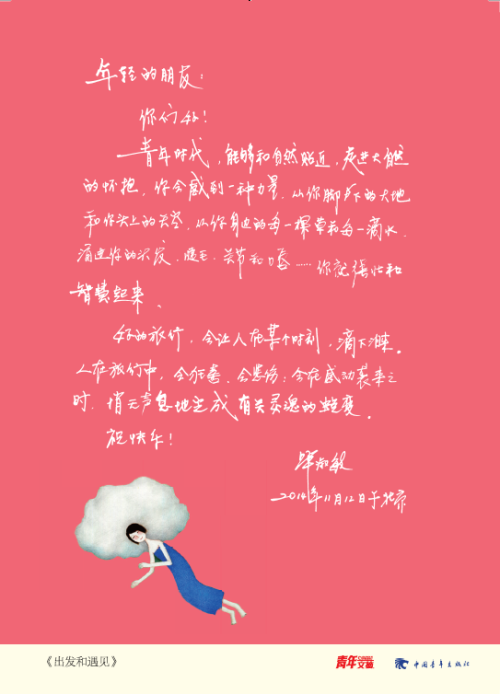 年轻的朋友：
你们好！
青年时代，能够和自然贴近，走进大自然
的怀抱，你会感到一种力量，从你脚下的大地
和你头上的天空，从你身边的每一棵草和每一滴水，
涌进你的头发、睫毛、关节和口唇……你就强壮和
智慧起来。
好的旅行，会让人在某个时刻，滴下泪来。
人在旅行中，会狂喜、会悲伤；会在感动袭来之
时，悄无声息地生成有关灵魂的蜕变。
祝快乐！
毕淑敏
2014年11月12日于北京
《出发和遇见》
青年文摘 中国青年出版社